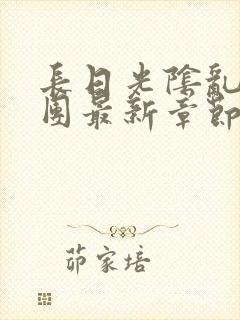 長日光陰亂
團最新章節
茆家培